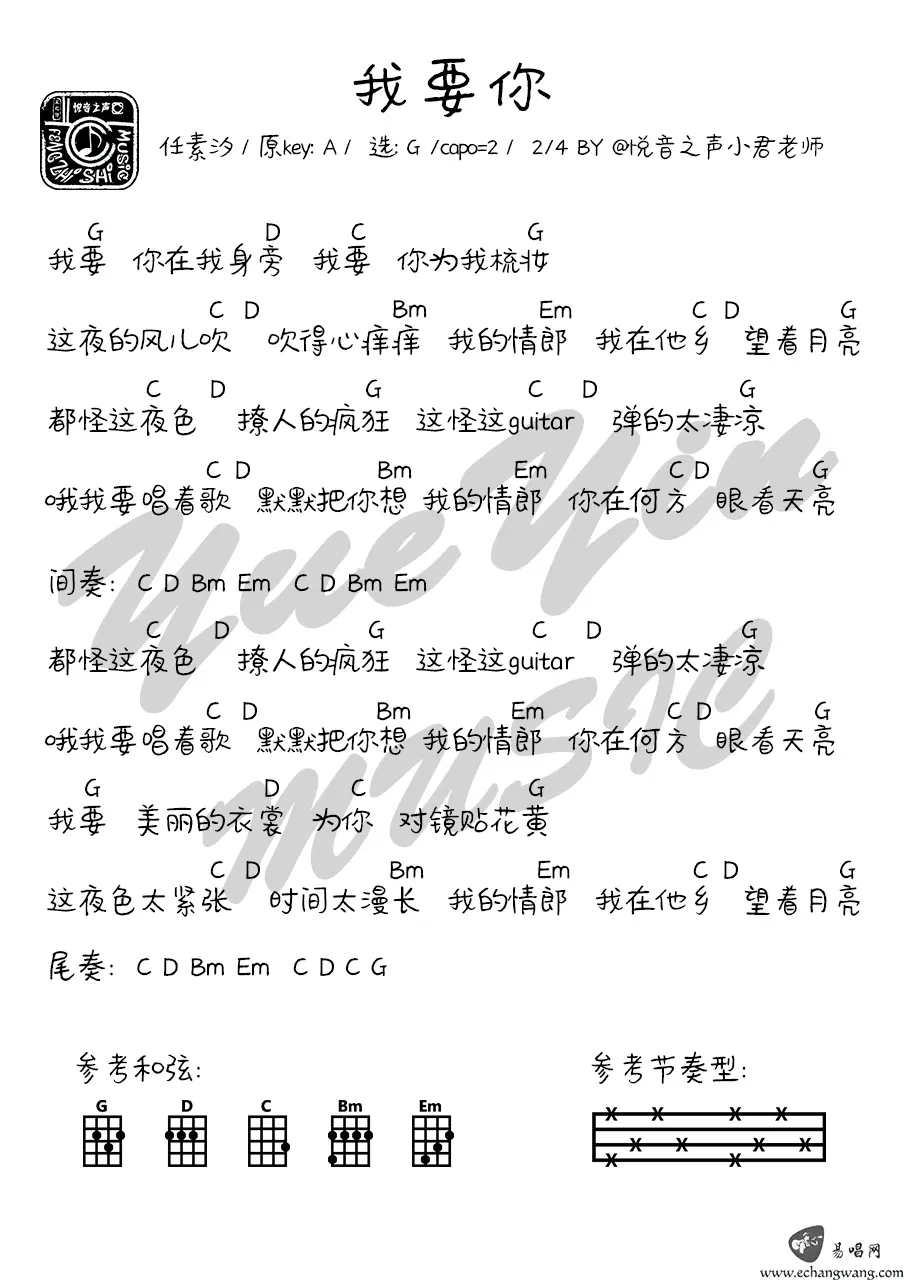 我要你
悦音之声
MUSIC
任素汐 / 原key: A / 选: G /capo=2 / 2/4 BY @悦音之声小君老师
G D C G
我要 你在我身旁 我要 你为我梳妆
C D Bm Em C D G
这夜的风儿吹 吹得心痒痒 我的情郎 我在他乡 望着月亮
C D G C D G
都怪这夜色 撩人的疯狂 这怪这guitar 弹的太凄凉
C D Bm Em C D G
哦我要唱着歌 默默把你想 我的情郎 你在何方 眼看天亮
间奏: C D Bm Em C D Bm Em
C D G C D G
都怪这夜色 撩人的疯狂 这怪这guitar 弹的太凄凉
C D Bm Em C D G
哦我要唱着歌 默默把你想 我的情郎 你在何方 眼看天亮
G D C G
我要 美丽的衣裳 为你 对镜贴花黄
C D Bm Em C D G
这夜色太紧张 时间太漫长 我的情郎 我在他乡 望着月亮
尾奏: C D Bm Em C D C G
YueYin
MUSIC
参考和弦: 参考节奏型:
G D C Bm Em
X X X X
X X X X
X X
易唱网
www.echangwang.com